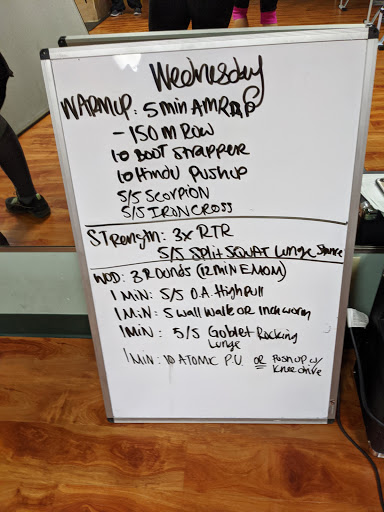 Wednesday
WARMUP: 5 min AMRAP
- 150 m Row
10 BOOT STRAPPER
10 HINDU PUSHUP
5/5 SCORPION
5/5 IRON CROSS
STRENGTH: 3x RTR
5/5 SPLIT SQUAT Lunge Stance
WOD: 3 ROUNDS (12 MIN EMOM)
1 MIN: 5/5 O.A. High Pull
1 MIN: 5 wall walk OR Inch worm
1 MIN: 5/5 Goblet Rocking
Lunge
1 MIN: 10 ATOMIC P.U. OR PUSHUP w/
Knee drive